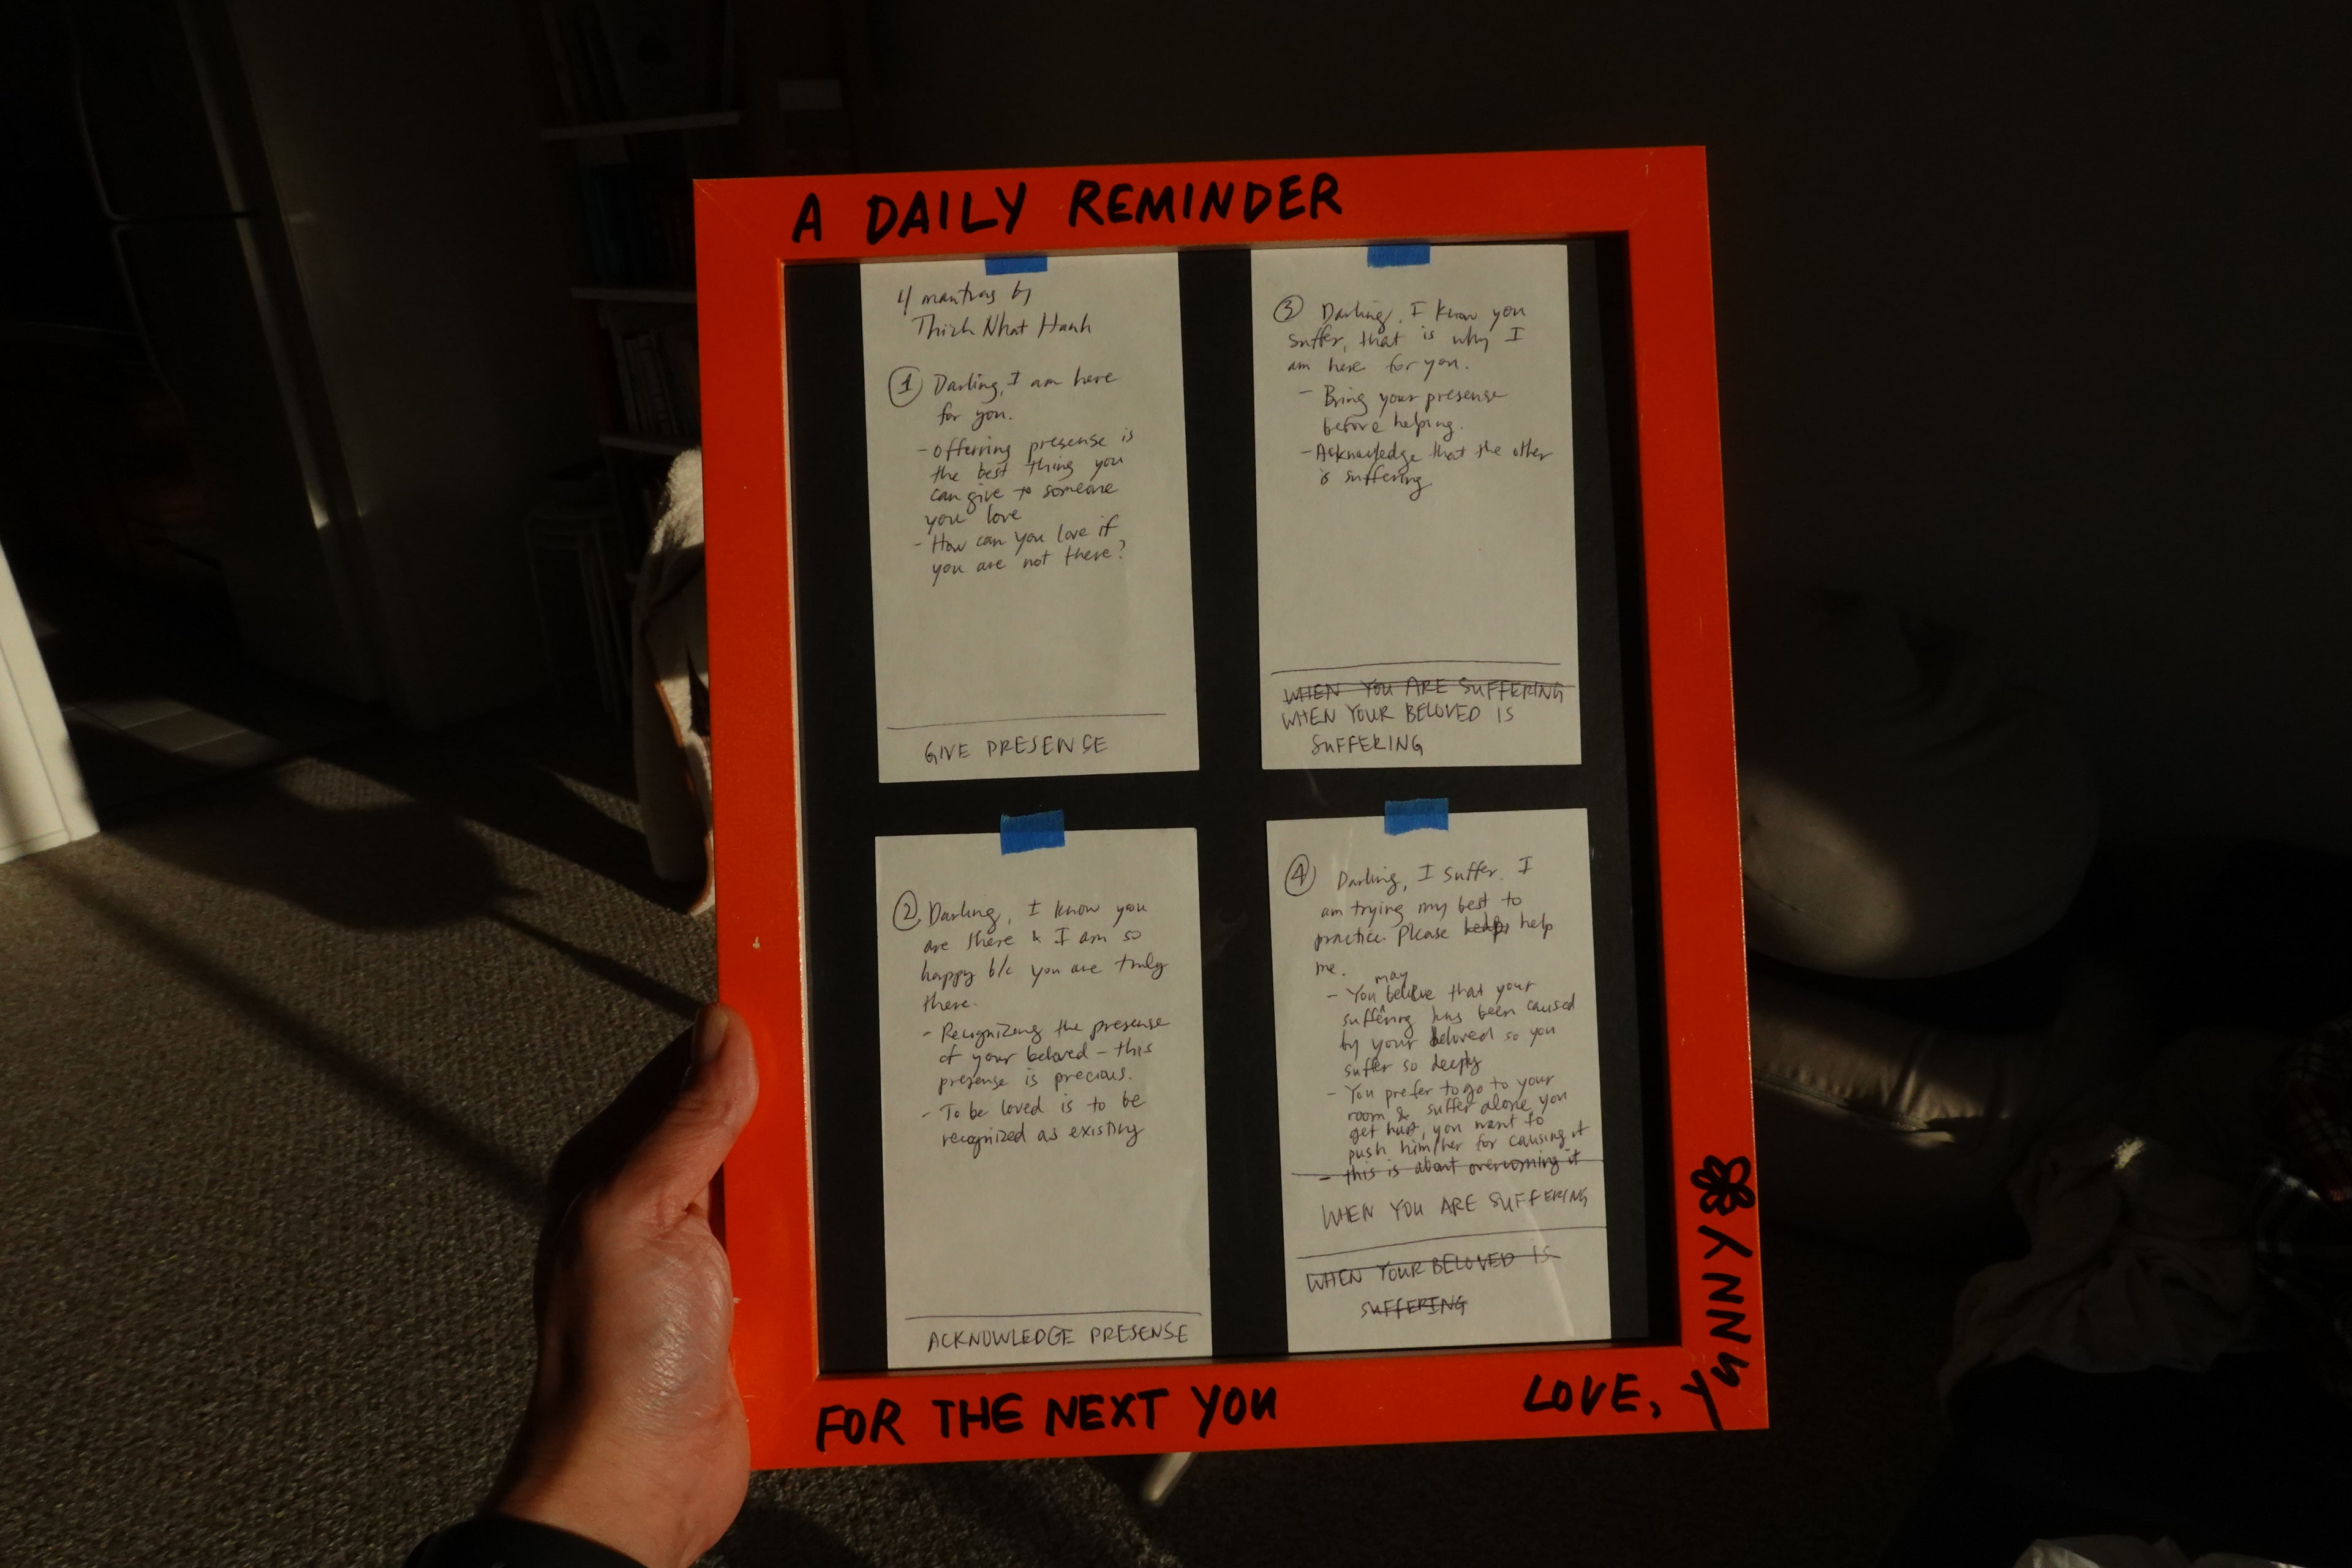 A DAILY REMINDER
4 mantras by
Thich Nhat Hanh
① Darling, I am here
for you.
- Offerring presense is
the best thing you
can give to someone
you love
- How can you love if
you are not there?
GIVE PRESENSE
② Darling, I know you
are there & I am so
happy b/c you are truly
there.
- Recognizing the presense
of your beloved - this
presense is precious.
- To be loved is to be
recognized as existing
ACKNOWLEDGE PRESENSE
③ Darling, I know you
suffer, that is why I
am here for you.
- Bring your presense
before helping.
- Acknowledge that the other
is suffering
WHEN YOU ARE SUFFERING
WHEN YOUR BELOVED IS
SUFFERING
④ Darling, I suffer. I
am trying my best to
practice. Please help
me.
- You may believe that your
suffering has been caused
by your beloved so you
suffer so deeply
- You prefer to go to your
room & suffer alone, you
get hurt, you want to
push him/her for causing it
- this is about overcoming it
WHEN YOU ARE SUFFERING
WHEN YOUR BELOVED IS
SUFFERING
FOR THE NEXT YOU
LOVE, YUNNY